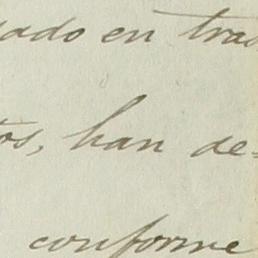 ado en tras
tos, han de-
conforme